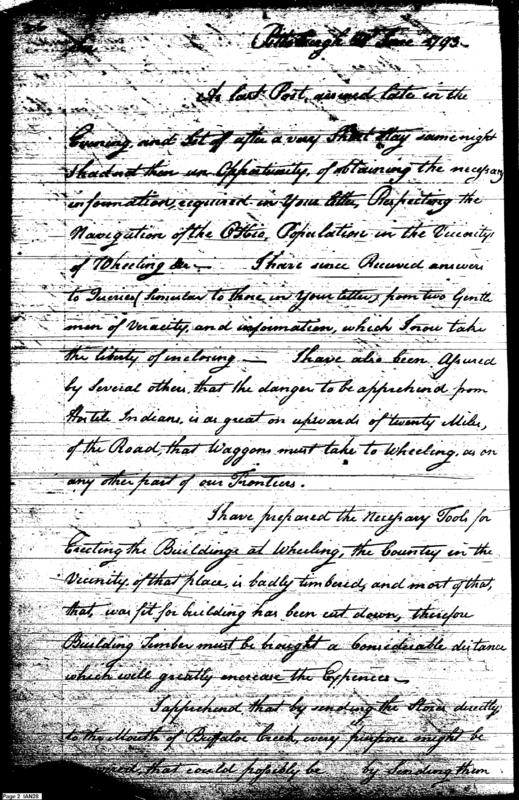 Sir
Pittsburgh 21st June 1793.
As last Post, arived late in the
Evening, and Set off after a very Short Stay same night
I had not then an Opportunity, of obtaining the necessary
information, required in Your letter, Respecting the
Navigation of the Ohio, Population in the Vicinity
of Wheeling &c — I have since Received answers
to Queries Simular to those in Your letter, from two Gentle
men of Veracity, and information, which I now take
the liberty of inclosing — I have also been Assured
by Several others, that the danger to be apprehend from
Hostile Indians, is as great on upwards of twenty Miles,
of the Road, that Waggons must take to Wheeling, as on
any other part of our Frontiers.
I have prepared the Necessary Tools for
Erecting the Buildings at Wheeling, the Country in the
Vicinity, of that place, is badly timbered, and most of that,
that, was fit for building has been cut down, therefore
Building Timber must be brought a Considerable distance
which will greatly encrease the Expences —
I apprehend, that by sending the Stores directly
to the Mouth of Buffaloe Creek, every purpose might be
that could possibly be by Sending them
Page 2 IAN28